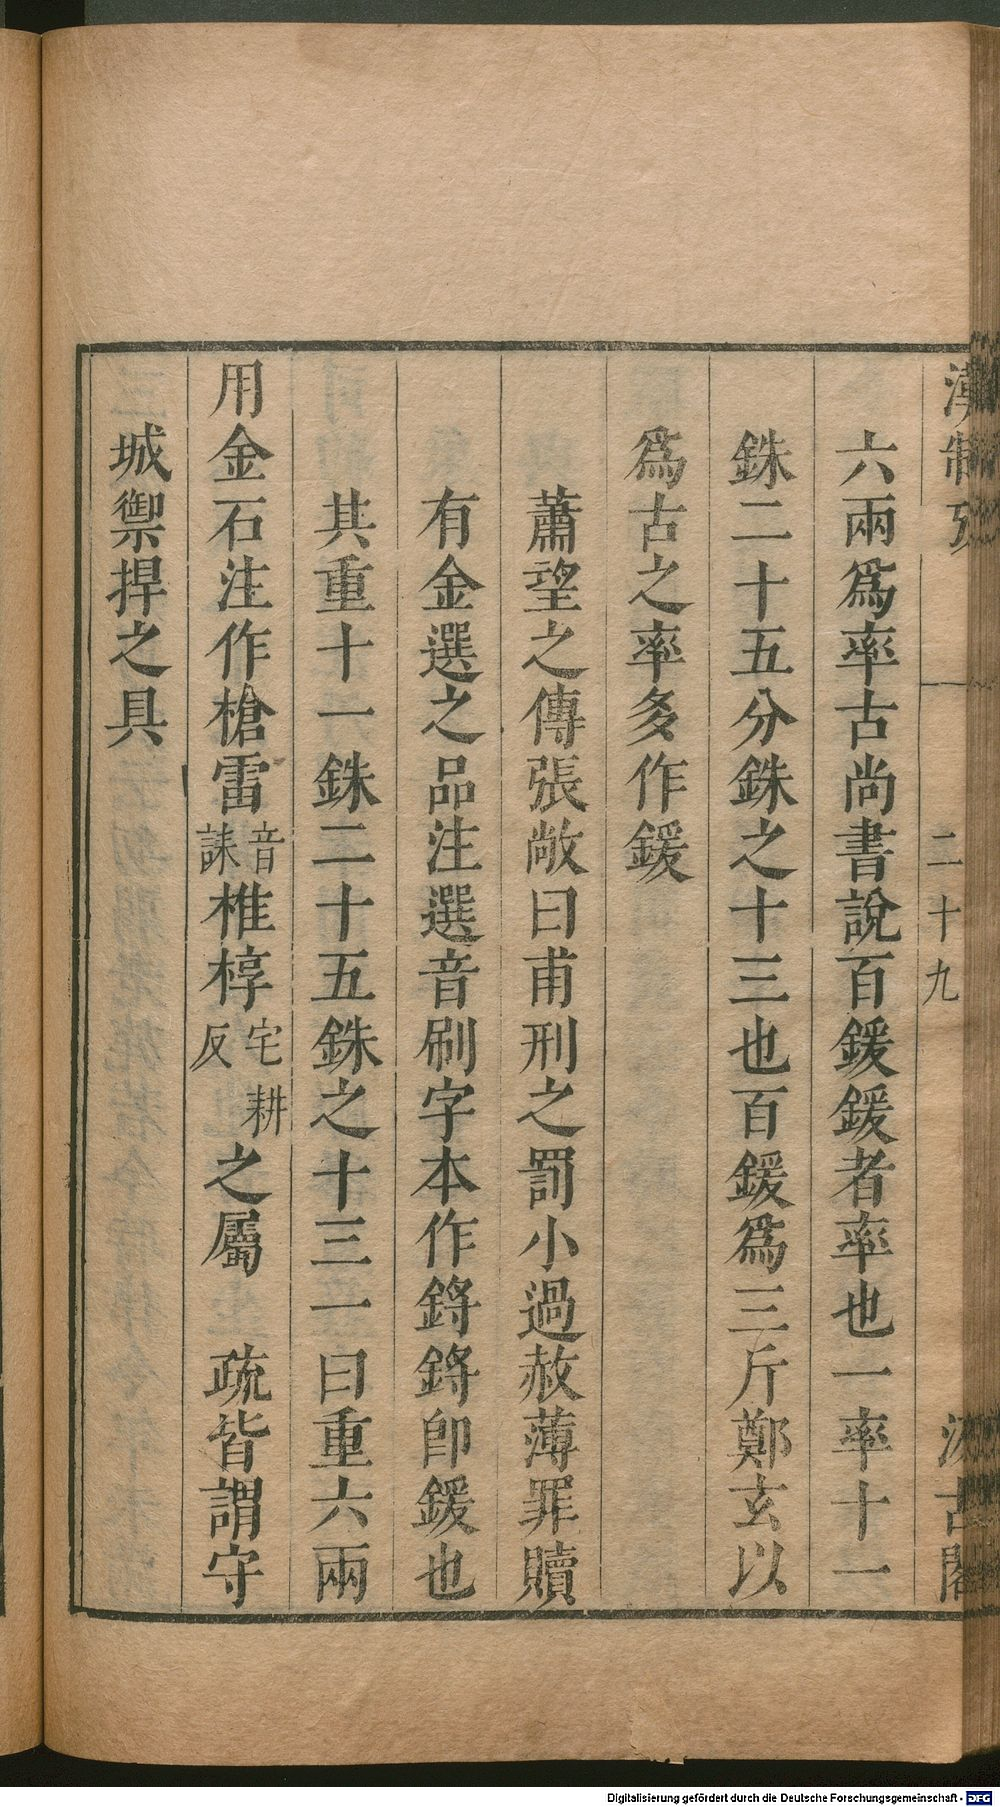 漢制攷 二十九 汲古閣
六兩爲率古尚書說百鍰鍰者率也一率十一
銖二十五分銖之十三也百鍰爲三斤鄭玄以
爲古之率多作鍰
蕭望之傳張敞曰甫刑之罰小過赦薄罪贖
有金選之品注選音刷字本作鋝鋝卽鍰也
其重十一銖二十五銖之十三一曰重六兩
用金石注作槍雷音誄椎椁宅耕反之屬 疏皆謂守
城禦捍之具
Digitalisierung gefördert durch die Deutsche Forschungsgemeinschaft - DFG